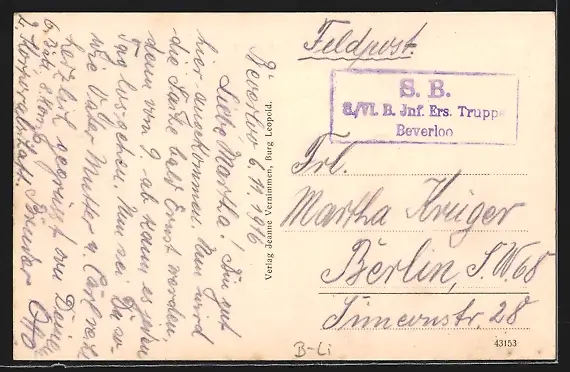 Beverloo 6.11.1916
Liebe Martha! Bin gut
hier angekommen. Nun wird
die Sache bald Ernst werden,
denn vom 9. ab kann es jeden
Tag los gehen. Nun sei Du so-
wie Vater Mutter u. Carl sehr
herzlich gegrüßt von Deinem
Bruder Otto
2. Korporalschaft.
Verlag Jeanne Vernimmen, Burg Leopold.
Feldpost.
S. B.
8./VI. B. Jnf. Ers. Truppe
Beverloo
Frl.
Martha Krüger
Berlin, S.W. 68
Simeonstr. 28
43153
B-Li